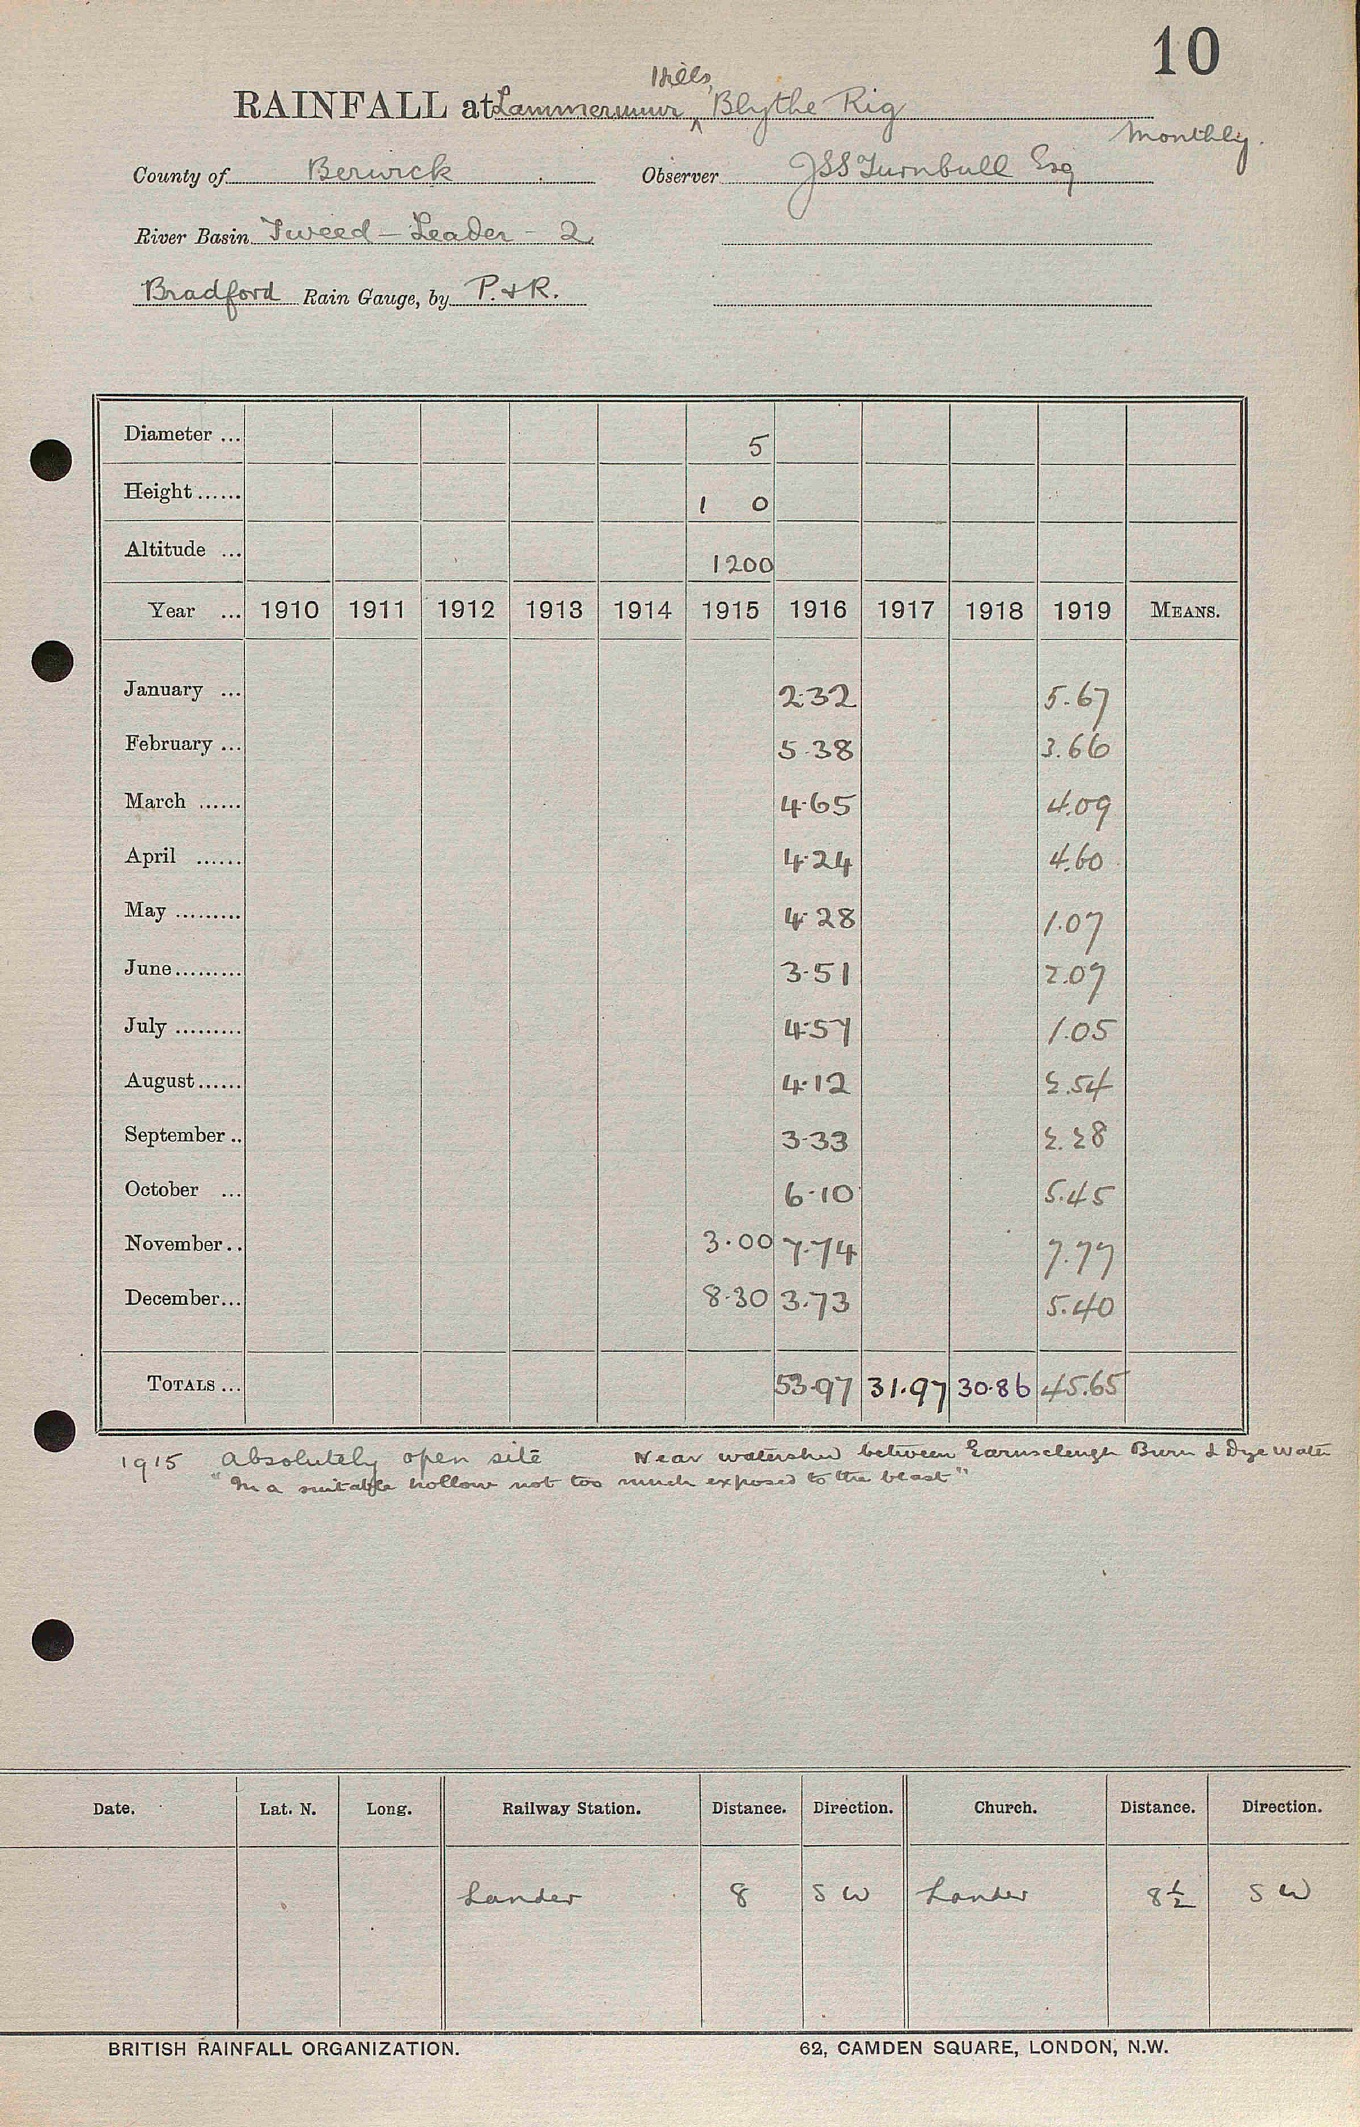 10
RAINFALL at Lammermuir Hills, Blythe Rig
Monthly.
County of Berwick Observer JSS Turnbull Esq
River Basin Tweed - Leader - 2
Bradford Rain Gauge, by P. & R.
Diameter ... 5
Height ...... 1 0
Altitude ... 1200
Year ... 1910 1911 1912 1913 1914 1915 1916 1917 1918 1919 MEANS.
January ... 2.32 5.67
February ... 5.38 3.66
March ...... 4.65 4.09
April ...... 4.24 4.60
May ......... 4.28 1.07
June ......... 3.51 2.07
July ......... 4.57 1.05
August ...... 4.12 2.54
September .. 3.33 2.28
October ... 6.10 5.45
November .. 3.00 7.74 7.77
December ... 8.30 3.73 5.40
TOTALS ... 53.97 31.97 30.86 45.65
1915 Absolutely open site Near watershed between Earnscleugh Burn & Dye Water
"In a suitable hollow not too much exposed to the blast"
Date. Lat. N. Long. Railway Station. Distance. Direction. Church. Distance. Direction.
Lauder 8 S W Lauder 8½ S W
BRITISH RAINFALL ORGANIZATION. 62, CAMDEN SQUARE, LONDON, N.W.